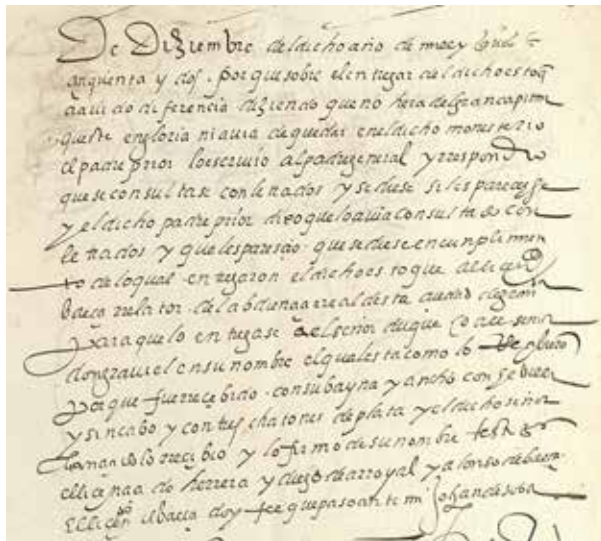 De Diziembre del dicho año de mil y quis e
cinquenta y dos. porque sobre el entregar del dicho estoq
a auido diferencia diziendo que no hera del gran capitan
que este en gloria ni auia de quedar en el dicho monesterio
el padre prior lo escriuio al padre general y rrespondio
que se consultase con letrados y se diese si les pareçiese
y el dicho padre prior dixo que lo auia consultado con
letrados y que les pareçio que se diese en cumplimien
to de lo qual entregaron el dicho estoque al liçendo
baeça rrelator de la abdiençia rreal desta çiudad de granada
para que lo entregase al señor duque o al señor
don graviel en su nombre el qual esta como lo
porque fue rreçebido con su bayna y ancho
y sin cabo y con tres chatones de plata y el dicho señor
liçençiado lo rreçibio y lo firmo de su nombre testigos
el liçençiado herrera y diego de arroyal y alonso de baeça
El liçendo baeça doy fee que paso ante mi Johan de sosa